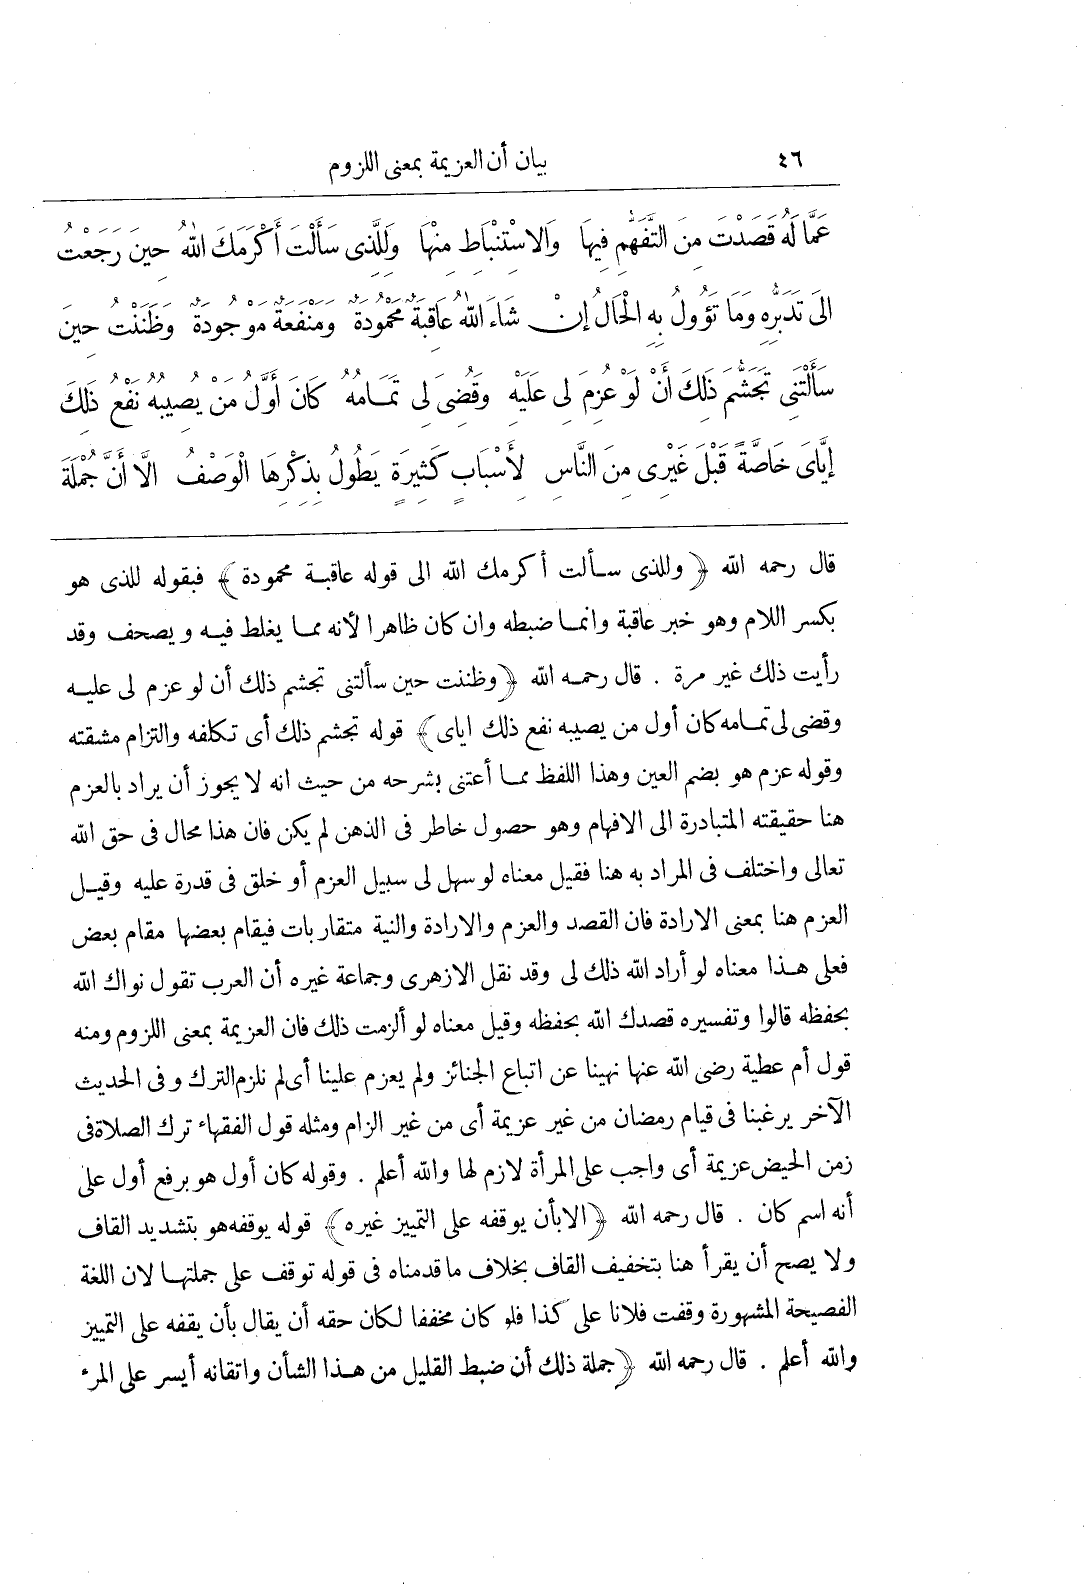 ٤٦
بيان أن العزيمة بمعنى اللزوم
عَمَّا لَهُ قَصَدْتَ مِنَ التَّفَهُّمِ فِيهَا وَالِاسْتِنْبَاطِ مِنْهَا وَلِلَّذِى سَأَلْتَ أَكْرَمَكَ اللهُ حِينَ رَجَعْتُ
الَى تَدَبُّرِهِ وَمَا تَؤُولُ بِهِ الْحَالُ إِنْ شَاءَ اللهُ عَاقِبَةٌ مَحْمُودَةٌ وَمَنْفَعَةٌ مَوْجُودَةٌ وَظَنَنْتُ حِينَ
سَأَلْتَنِى تَجَشُّمَ ذَلِكَ أَنْ لَوْ عُزِمَ لِى عَلَيْهِ وَقُضِىَ لِى تَمَامُهُ كَانَ أَوَّلُ مَنْ يُصِيبُهُ نَفْعُ ذَلِكَ
إِيَّاىَ خَاصَّةً قَبْلَ غَيْرِى مِنَ النَّاسِ لِأَسْبَابٍ كَثِيرَةٍ يَطُولُ بِذِكْرِهَا الْوَصْفُ الَّا أَنَّ جُمْلَةَ
قال رحمه الله ﴿ وللذى سألت أكرمك الله الى قوله عاقبة محمودة ﴾ فبقوله للذى هو
بكسر اللام وهو خبر عاقبة وانما ضبطه وان كان ظاهرا لأنه مما يغلط فيه ويصحف وقد
رأيت ذلك غير مرة . قال رحمه الله ﴿ وظننت حين سألتنى تجشم ذلك أن لو عزم لى عليه
وقضى لى تمامه كان أول من يصيبه نفع ذلك اياى ﴾ قوله تجشم ذلك أى تكلفه والتزام مشقته
وقوله عزم هو بضم العين وهذا اللفظ مما أعتنى بشرحه من حيث انه لا يجوز أن يراد بالعزم
هنا حقيقته المتبادرة الى الافهام وهو حصول خاطر فى الذهن لم يكن فان هذا محال فى حق الله
تعالى واختلف فى المراد به هنا فقيل معناه لو سهل لى سبيل العزم أو خلق فى قدرة عليه وقيل
العزم هنا بمعنى الارادة فان القصد والعزم والارادة والنية متقاربات فيقام بعضها مقام بعض
فعلى هذا معناه لو أراد الله ذلك لى وقد نقل الازهرى وجماعة غيره أن العرب تقول نواك الله
بحفظه قالوا وتفسيره قصدك الله بحفظه وقيل معناه لو ألزمت ذلك فان العزيمة بمعنى اللزوم ومنه
قول أم عطية رضى الله عنها نهينا عن اتباع الجنائز ولم يعزم علينا أى لم نلزم الترك وفى الحديث
الآخر يرغبنا فى قيام رمضان من غير عزيمة أى من غير الزام ومثله قول الفقهاء ترك الصلاة فى
زمن الحيض عزيمة أى واجب على المرأة لازم لها والله أعلم . وقوله كان أول هو برفع أول على
أنه اسم كان . قال رحمه الله ﴿ الابأن يوقفه على التمييز غيره ﴾ قوله يوقفه هو بتشديد القاف
ولا يصح أن يقرأ هنا بتخفيف القاف بخلاف ما قدمناه فى قوله توقف على جملتها لان اللغة
الفصيحة المشهورة وقفت فلانا على كذا فلو كان مخففا لكان حقه أن يقال بأن يقفه على التمييز
والله أعلم . قال رحمه الله ﴿ جملة ذلك أن ضبط القليل من هذا الشأن واتقانه أيسر على المرء